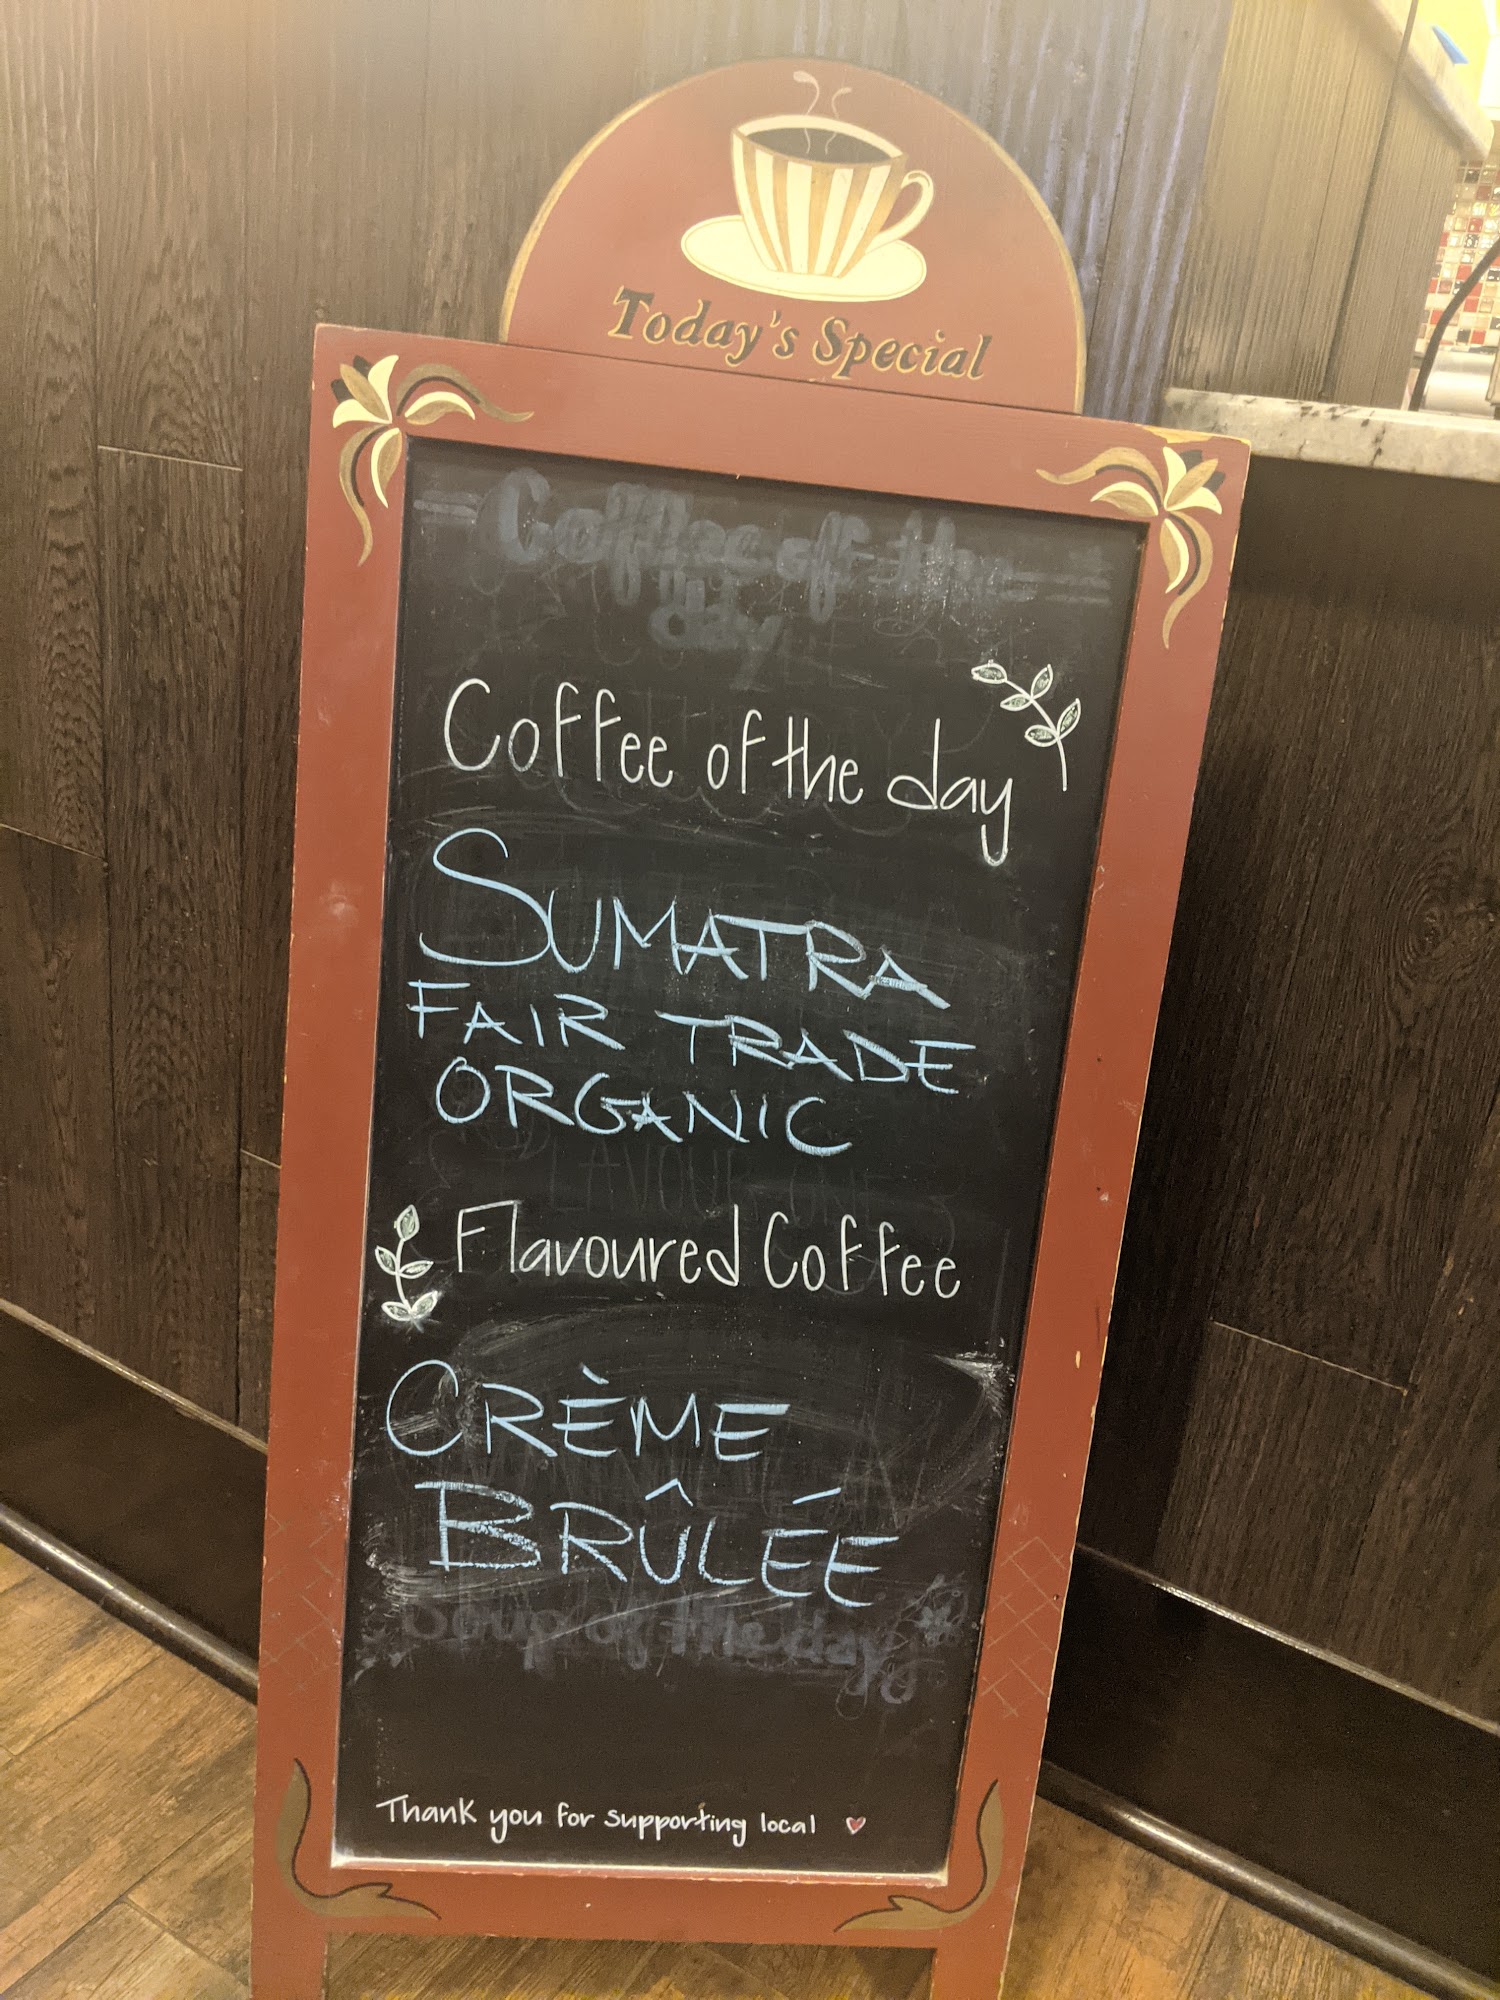 Today's Special
Coffee of the
day
Coffee of the day
SUMATRA
FAIR TRADE
ORGANIC
Flavoured Coffee
CRÈME
BRÛLÉE
Soup of the day
Thank you for supporting local